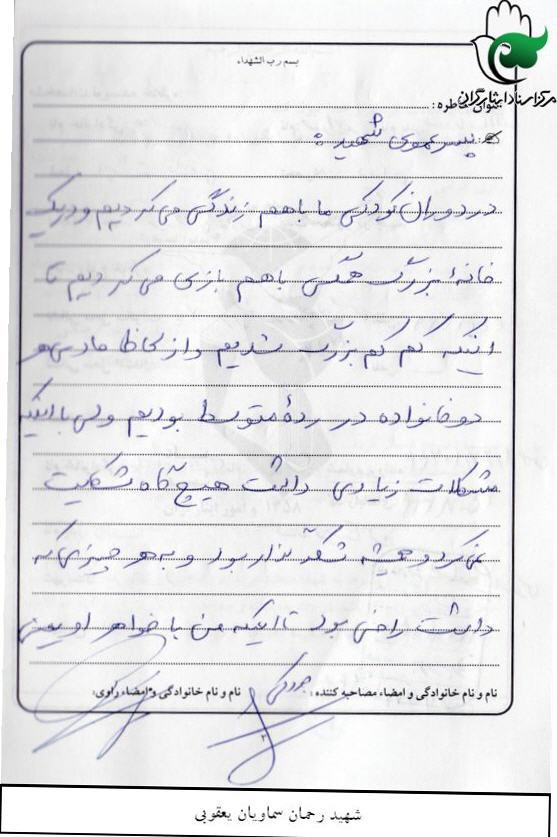 بسم رب الشهداء
مرکز اسناد ایثارگران
عنوان خاطره:
پسرعموی شهید:
در دوران کودکی ما باهم زندگی می کردیم و در یک
خانهٔ بزرگ همگی باهم بازی می کردیم تا
اینکه کم کم بزرگ شدیم و از لحاظ مادی هر
دو خانواده در ردهٔ متوسط بودیم ولی با اینکه
مشکلات زیادی داشت هیچ گاه شکایت
نمی کرد و همیشه شکرگذار بود و به هر چیزی که
داشت راضی بود تا اینکه من با خواهر او یعنی
نام و نام خانوادگی و امضاء مصاحبه کننده:
نام و نام خانوادگی و امضاء راوی:
۲
شهید رحمان سماویان یعقوبی